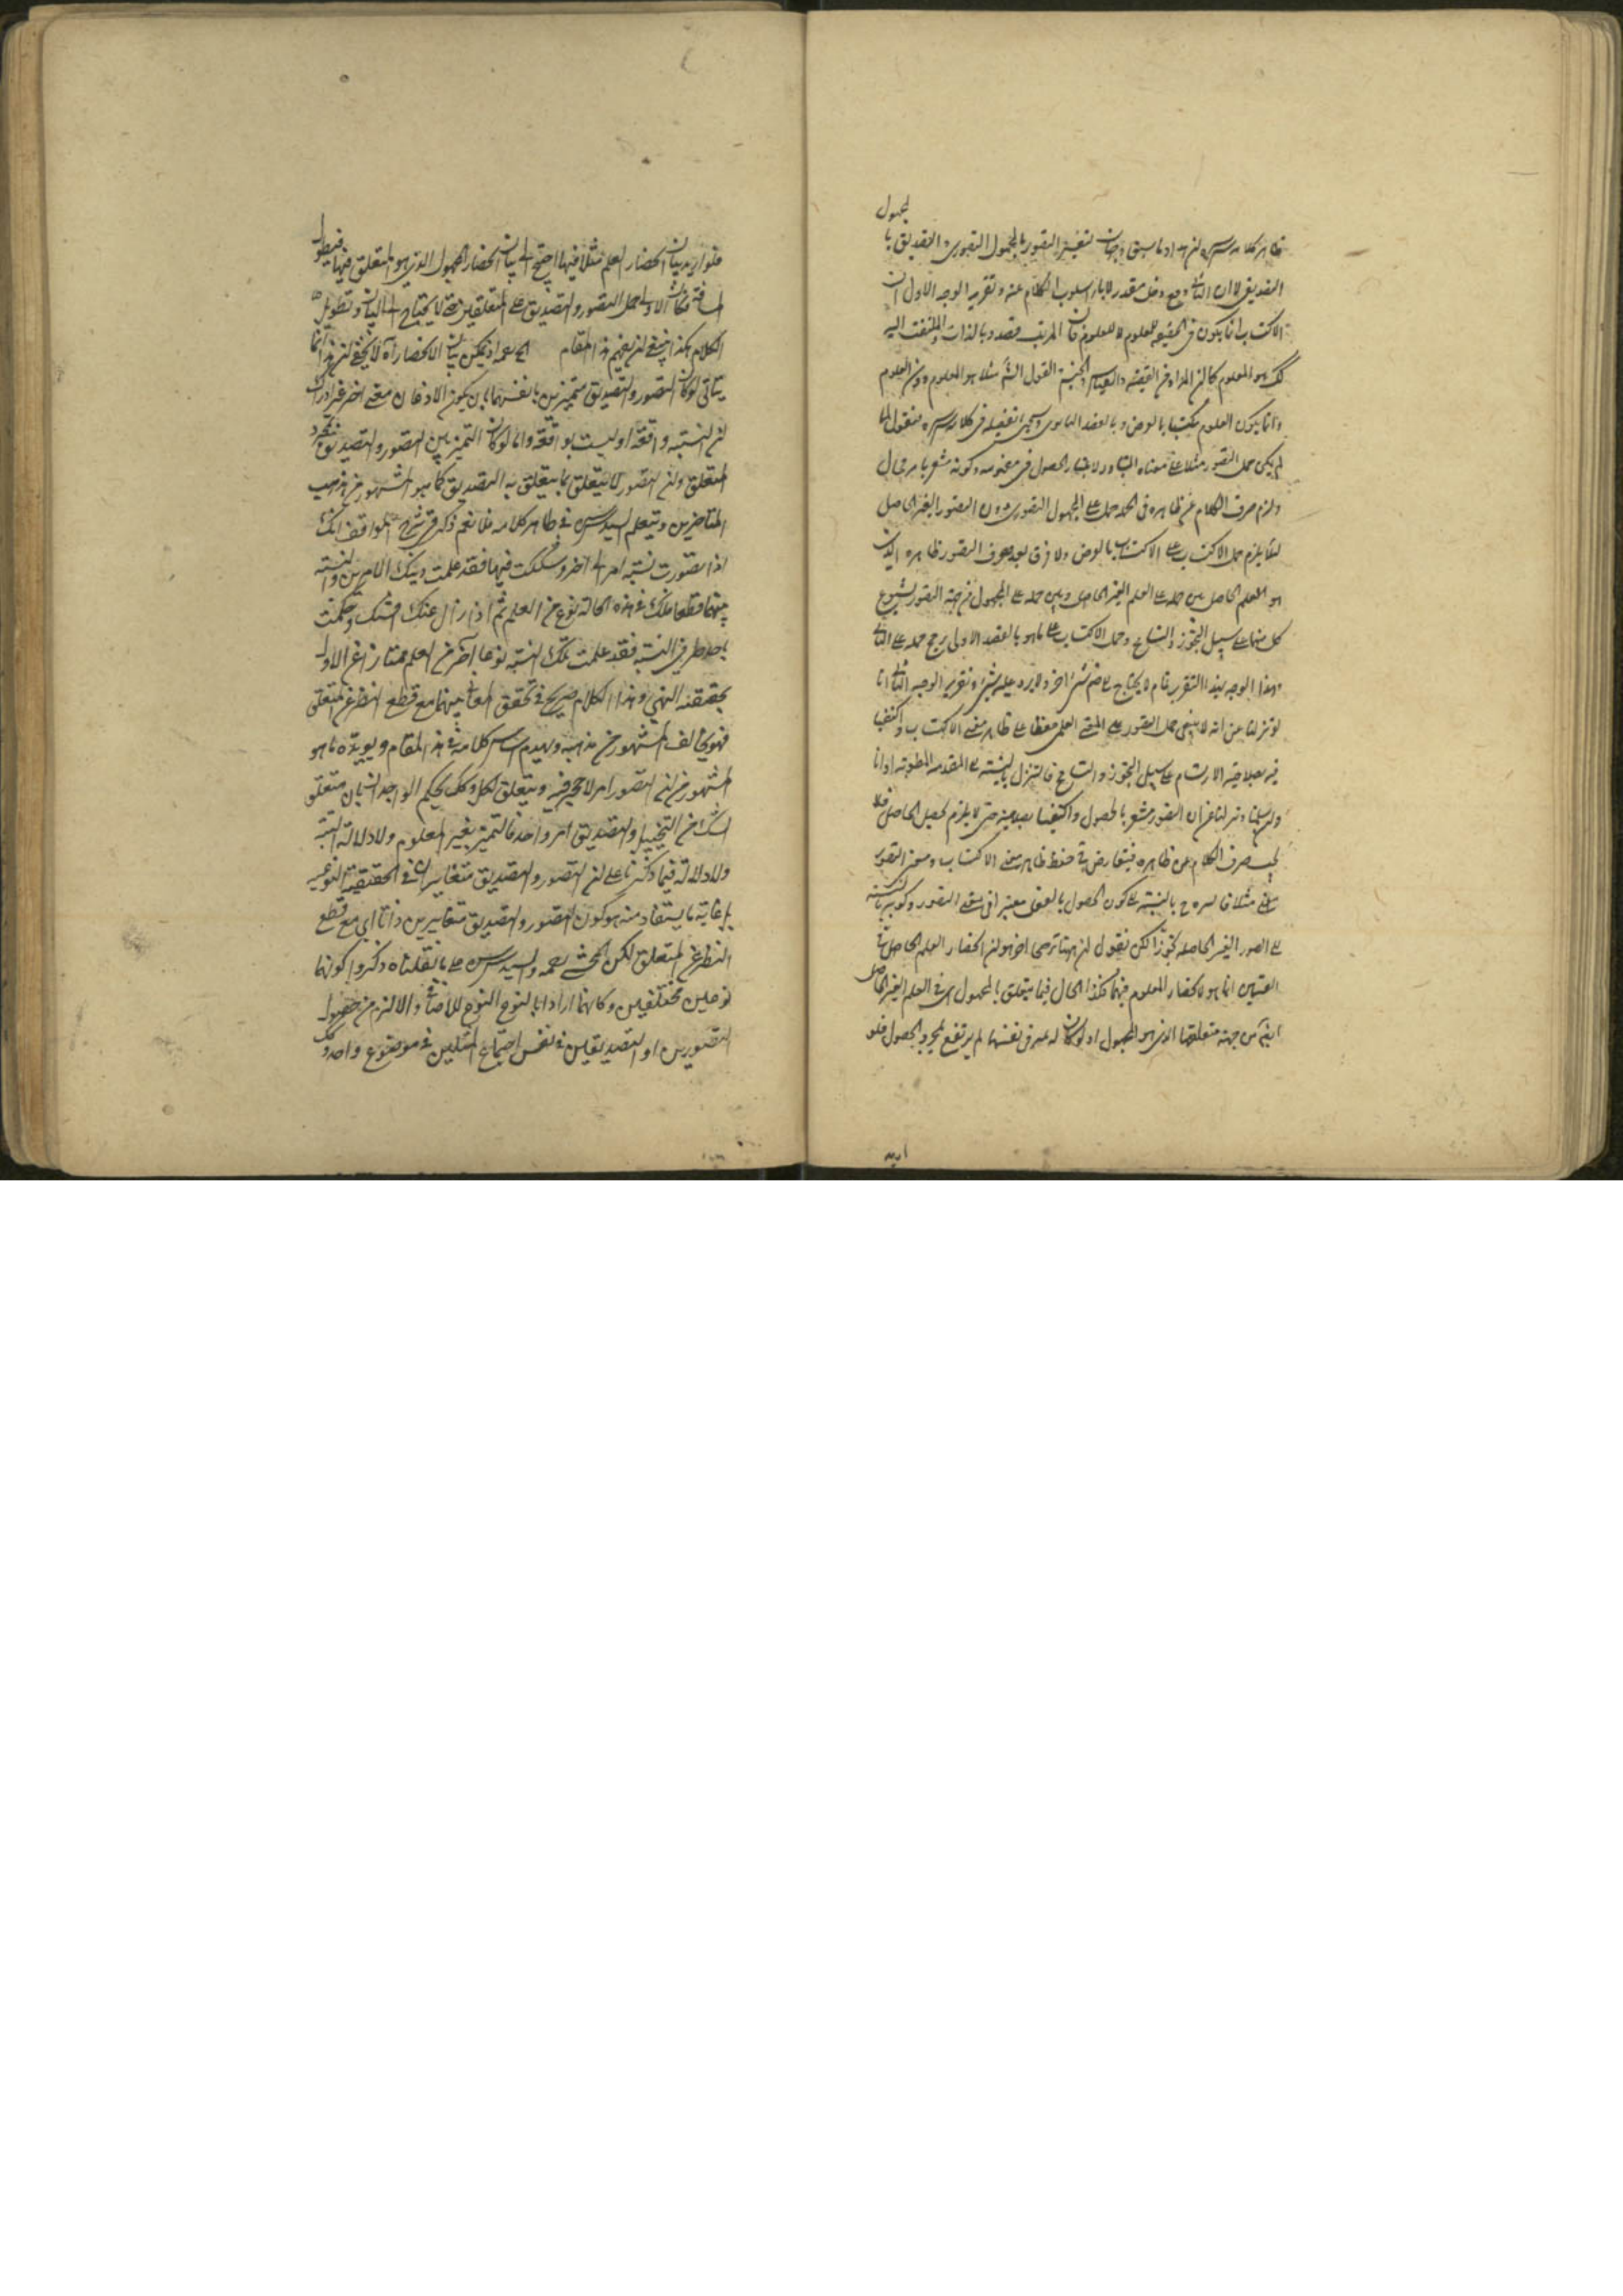 لمجهول
ظاهر كلامه سره لنا هذا ما سبق وجهان لتفسير التصور بالمجهول التصوري والتصديق با
التصديقي الا ان الثاني دفع دخل مقدر لاباء اسلوب الكلام عنه وتقرير الوجه الاول ان
الاكتساب انما يكون في الحقيقة للمعلوم لا للعلوم فان المرتب قصدا وبالذات والملتفت اليه
كك هو المعلوم كما ان المراد من القضية والقياس والجنس القول الشارح مثلا هو المعلوم دون العلوم
وانما يكون العلوم مكتسبا بالعرض وبالقصد الثانوي وسيجئ تفصيله في كلامه سره فنقول لما
لم يكن حمل التصور مثلا على معناه المتبادر لاعتبار الحصول في مفهومه وكونه مشعرا به بحال
ولزم صرف الكلام عن ظاهره في الجملة حمل على المجهول التصوري دون التصور الغير الحاصل
لئلا يلزم حمل الاكتساب على الاكتساب بالعرض ولا فرق بعد صرف التصور ظاهره الذي
هو العلم الحاصل بين حمله على العلم الغير الحاصل وبين حمله على المجهول من جهة التصور لشيوع
كل منهما على سبيل التجوز والتسامح وحمل الاكتساب على ما هو بالقصد الاولى رجح حمله على الثاني
وهذا الوجه بهذا التقرير تام لا يحتاج الى ضم شئ اخر ولا يرد عليه شئ وتقرير الوجه الثاني انا
لو تنزلنا عن انه لا ينبغي حمل التصور على المعنى العلمي حفظا على ظاهر معنى الاكتساب واكتفينا
فيه بصلاحية الارتسام على سبيل التجوز والتسامح فالتنزل بالنسبة الى المقدمة المطوية او انا
ولئن سلمنا وتنزلنا عن ان التصور مشعر بالحصول واكتفينا بصلاحيته حتى لا يلزم تحصيل الحاصل فلا
يجب صرف الكلام عن ظاهره فيتعارض في حفظ ظاهر معنى الاكتساب ومعنى التصور
بالنسبة الى كون الحصول بالفعل معتبرا في معنى التصور وكونه بالنسبة
الى الصور الغير الحاصلة تجوزا لكن نقول ان ههنا ترجيحا اخر هو ان انحصار العلم الحاصل في
القسمين انما هو بانحصار المعلوم فيهما فكذا الحال فيما يتعلق بالمجهول اي في العلم الغير الحاصل
انه من جهة متعلقها الذي هو المجهول اذ لو كان له عسر في نفسها لم يرتفع بمجرد الحصول فلو
اريد
فلو اريد بيان انحصار العلم مثلا فيهما احتج الى بيان انحصار المجهول الذي هو المتعلق فيهما فيطول
المسافة فكان الاولى حمل التصور والتصديق على المتعلقين حتى لا يحتاج الى البيان وتطويل
الكلام هكذا ينبغي ان يفهم هذا المقام اذ يمكن بيان الانحصار آه لا يخفى ان هذا انما
يتأتى لو كان التصور والتصديق متميزين بانفسهما بان يكون الاذعان معنى اخر غير ادراك
ان النسبة واقعة او ليست بواقعة واما لو كان التميز بين التصور والتصديق بمجرد
المتعلق وان التصور لا يتعلق بما يتعلق به التصديق كما هو المشهور من مذهب
المتأخرين ويتعلم السيد سره في ظاهر كلامه فلا نعم ذكر في شرح المواقف انك
اذا تصورت نسبة امر الى اخر وشككت فيها فقد علمت ذينك الامرين والنسبة
بينهما قطعا فلك في هذه الحالة نوع من العلم ثم اذا زال عنك الشك وحكمت
باحد طرفي النسبة فقد علمت تلك النسبة نوعا آخر من العلم ممتازا عن الاول
بحقيقته انتهى وهذا الكلام صريح في تحقق المعاني بينهما مع قطع النظر عن المتعلق
فهو يخالف المشهور من مذهبه ويهدم اساس كلامه في هذا المقام ويؤيده ما هو
المشهور من ان التصور امر لا حجر فيه ويتعلق بكل وكك يحكم الوجدان بان متعلق
الشك من التخييل والتصديق امر واحد فالتميز بغير المعلوم ولا دلالة البتة
ولا دلالة فيما ذكرنا على ان التصور والتصديق متغايران في الحقيقة النوعية
بل غاية ما يستفاد منه هو كون التصور والتصديق متغايرين ذاتا اي مع قطع
النظر عن المتعلق لكن المحشي رحمه والسيد سره على ما نقلناه ذكروا كونهما
نوعين مختلفين وكانهما ارادا بالنوع النوع للاضافي والا لزم من حصول
التصورين او التصديقين في نفس اجتماع المثلين في موضوع واحد وكك